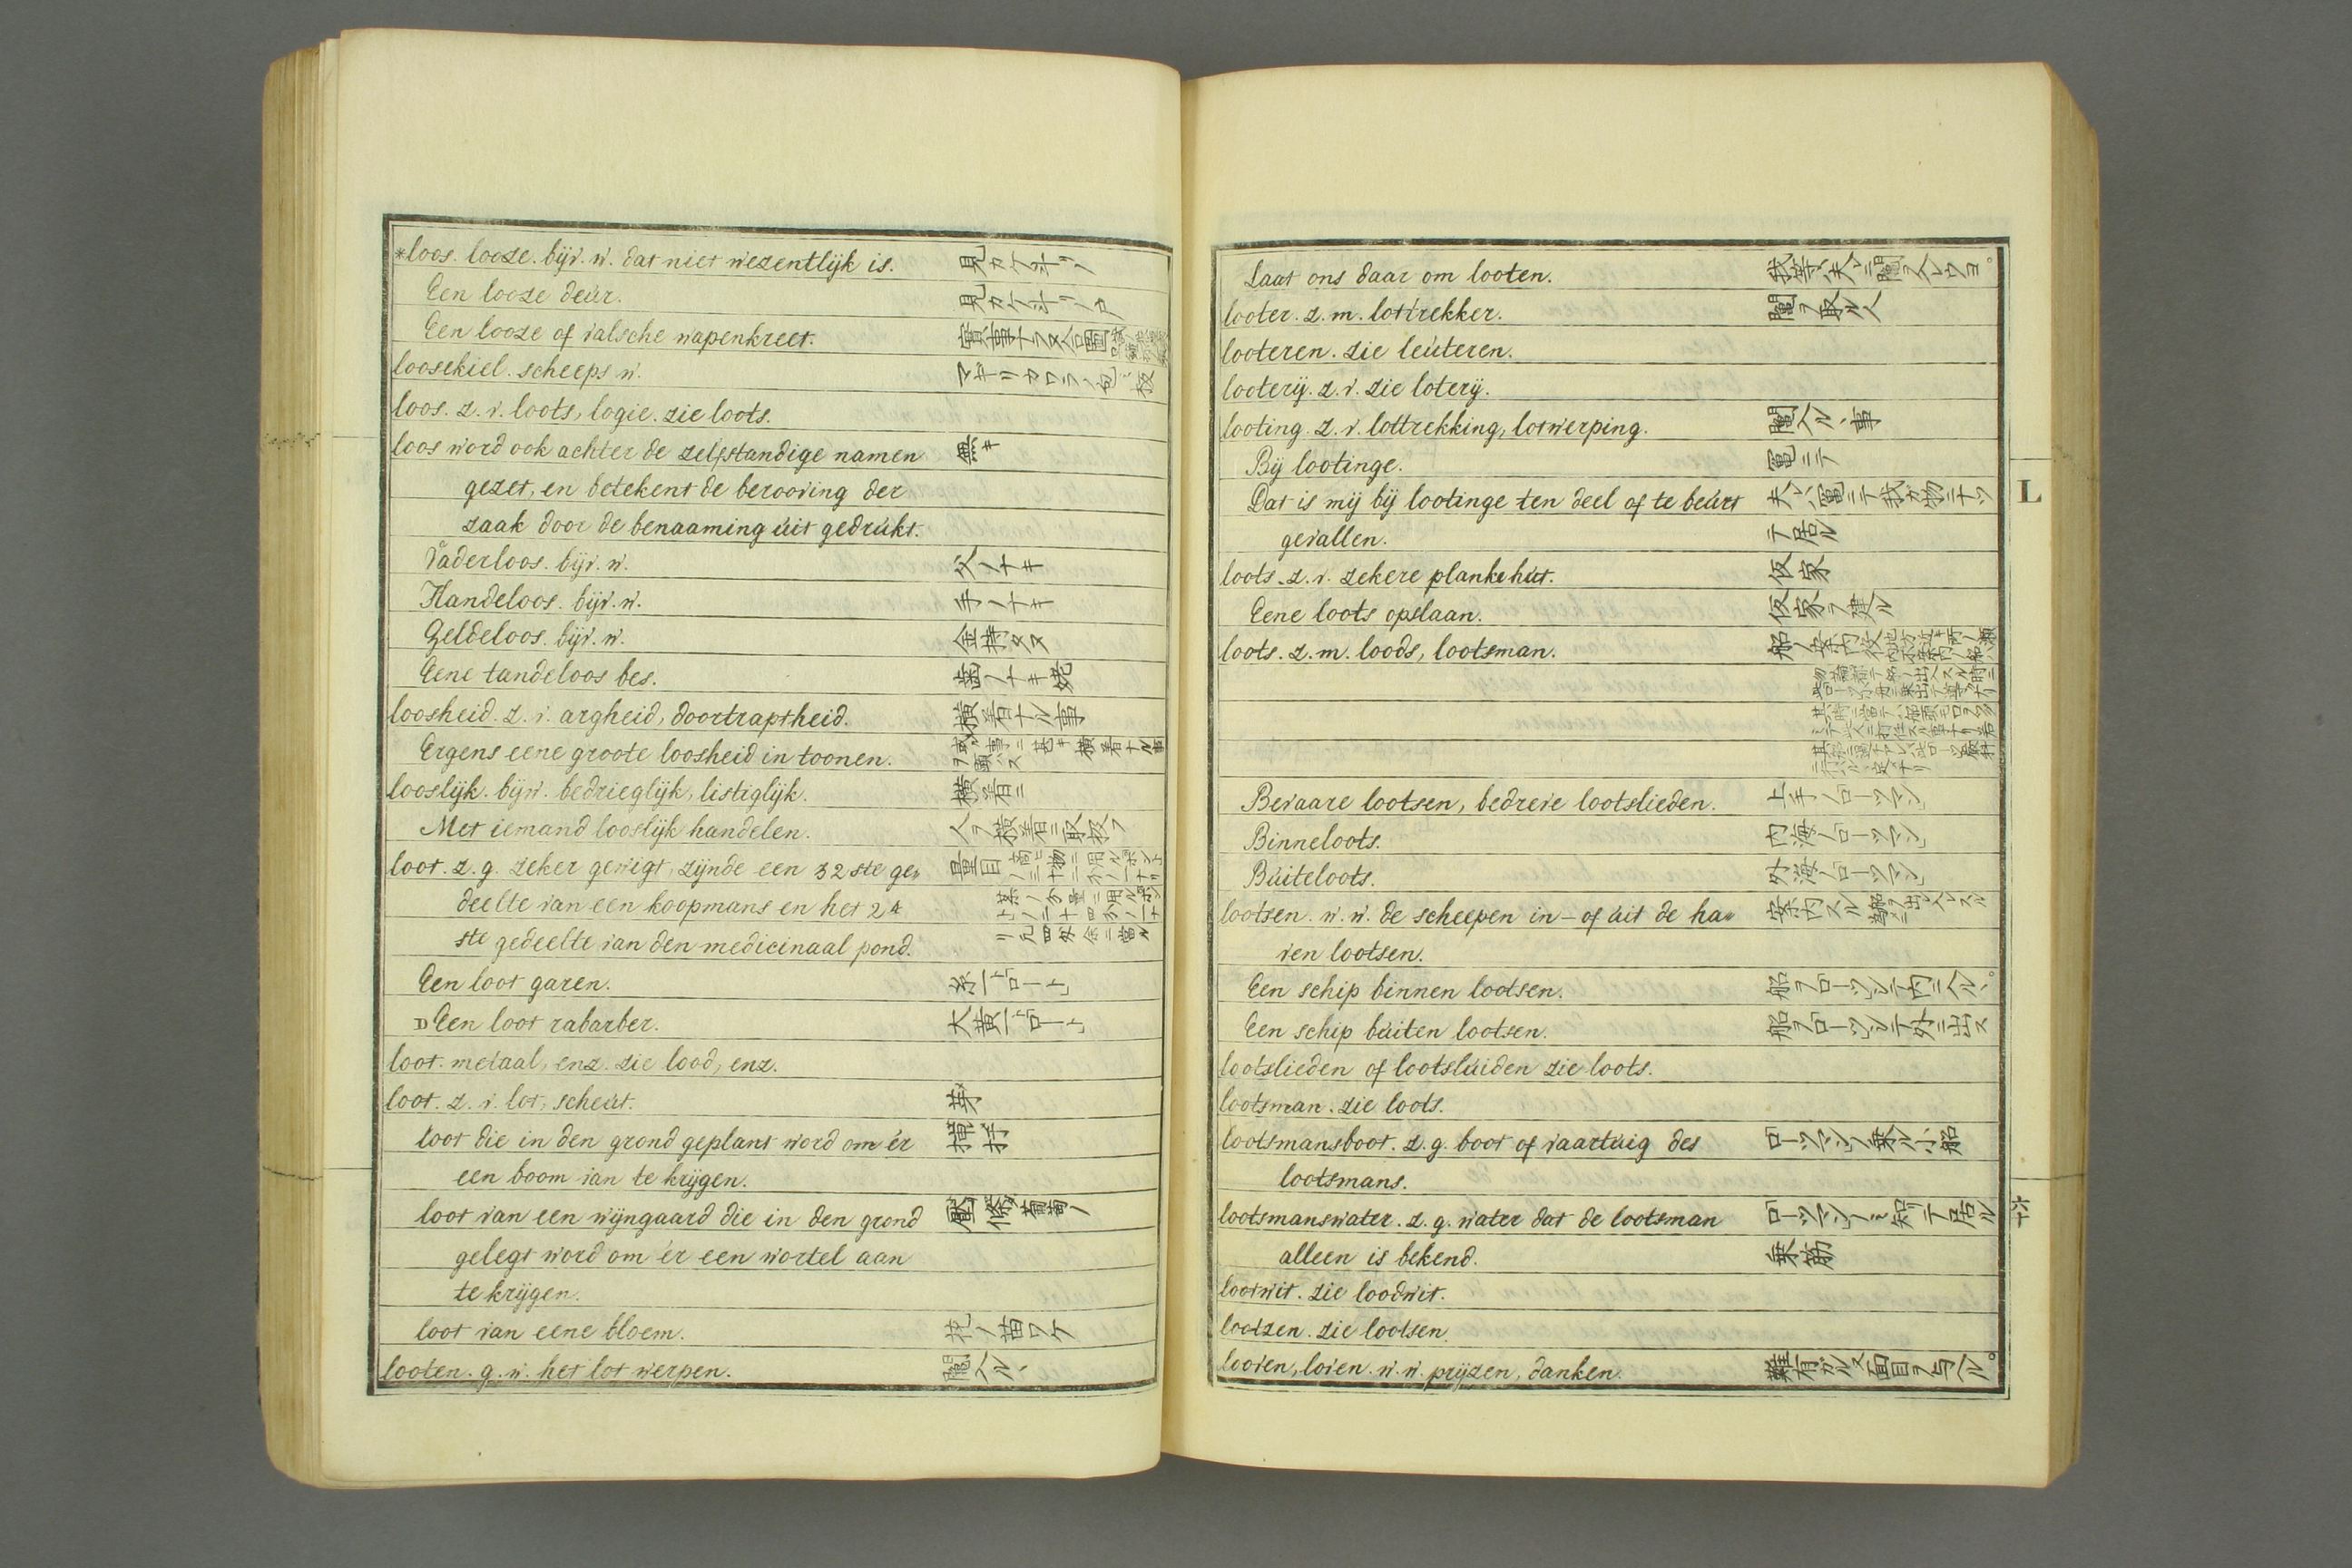 *loos. looze. bijv. w. dat niet wezentlijk is. 見カケ斗リノ
Een looze deúr. 見カケ斗リノ戸
Een looze of valsche wapenkreet. 實事ナラヌ合圖
loosekiel. scheeps w.
loos. z. v. loots, logie. zie loots.
loos word ook achter de zelfstandige namen 無キ
gezet, en betekent de berooving der
zaak door de benaaming úit gedrúkt.
Vaderloos. bijv. w. 父ノナキ
Handeloos. bijv. w. 手ノナキ
Geldeloos. bijv. w. 金持タヌ
Eene tandeloos bes. 歯ノナキ姥
loosheid. z. v. argheid, doortraptheid. 横着ナル事
Ergens eene groote loosheid in toonen.
looslijk. bijw. bedrieglijk, listiglijk. 横着ニ
Met iemand looslijk handelen. 人ヲ横着ニ取扱フ
loot. z. g. zeker gewigt, zijnde een 32 ste ge„ 量目
deelte van een koopmans en het 24
ste gedeelte van den medicinaal pond.
Een loot garen. 糸一「ロート」
D Een loot rabarber. 大黄一「ロート」
loot. metaal, enz. zie lood, enz.
loot. z. v. lot, scheút. 芽
loot die in den grond geplant word om ér
een boom van te krijgen.
loot van een wijngaard die in den grond
gelegt word om ér een wortel aan
te krijgen.
loot van eene bloem. 花ノ苗ワケ
looten. g. w. het lot werpen. 鬮入ル、
Laat ons daar om looten.
looter. z. m. lottrekker. 鬮ヲ取ル人
looteren. zie leúteren.
looterij. z. v. zie loterij.
looting. z. v. lottrekking, lotwerping. 鬮入ル、事
Bij lootinge. 鬮ニテ
Dat is mij bij lootinge ten deel of te beúrt 夫ハ鬮ニテ我ガ物ニナツ
gevallen. テ居ル
loots. z. v. zekere planke hút. 仮家
Eene loots opslaan. 仮家ヲ建ル
loots. z. m. loods, lootsman.
Bevaare lootsen, bedreve lootslieden. 上手ノ「ローツマン」
Binneloots. 内海ノ「ローツマン」
Búiteloots. 外海ノ「ローツマン」
lootsen. w. w. de scheepen in – of úit de ha„ 案内スル
ven lootsen.
Een schip binnen lootsen.
Een schip búiten lootsen. 船ヲ「ローツ」シテ外ニ出ス
lootslieden of lootslúiden zie loots.
lootsman. zie loots.
lootsmansboot. z. g. boot of vaartúig des 「ローツマン」ノ乗ル小船
lootsmans.
lootsmanswater. z. g. water dat de lootsman 「ローツマン」ノミ知リテ居ル
alleen is bekend. 乗筋
lootwit. zie loodwit.
lootzen. zie lootsen.
looven, loven. w. w. prijzen, danken.
L